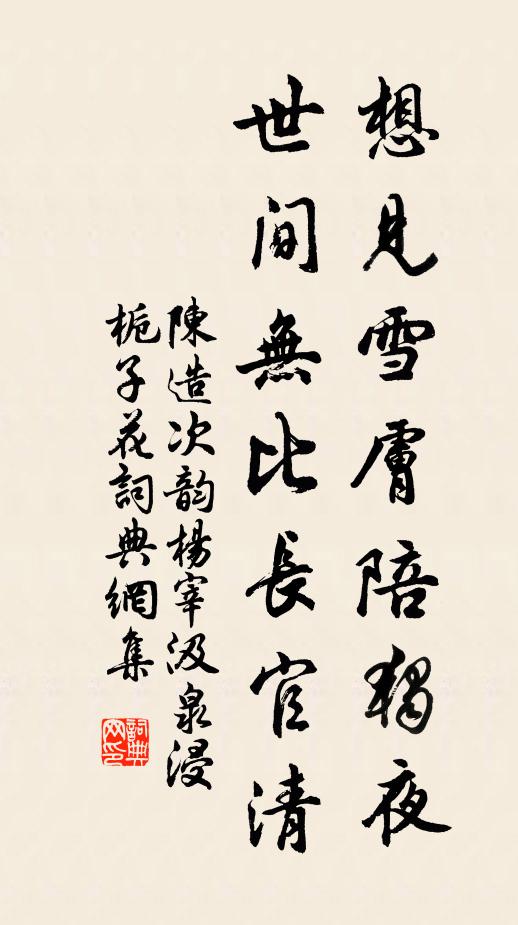 想見雪膚陪獨夜
世間無比長官清
陳造次韵楊宰汲泉浸
栀子花詞典網集
詞典網印